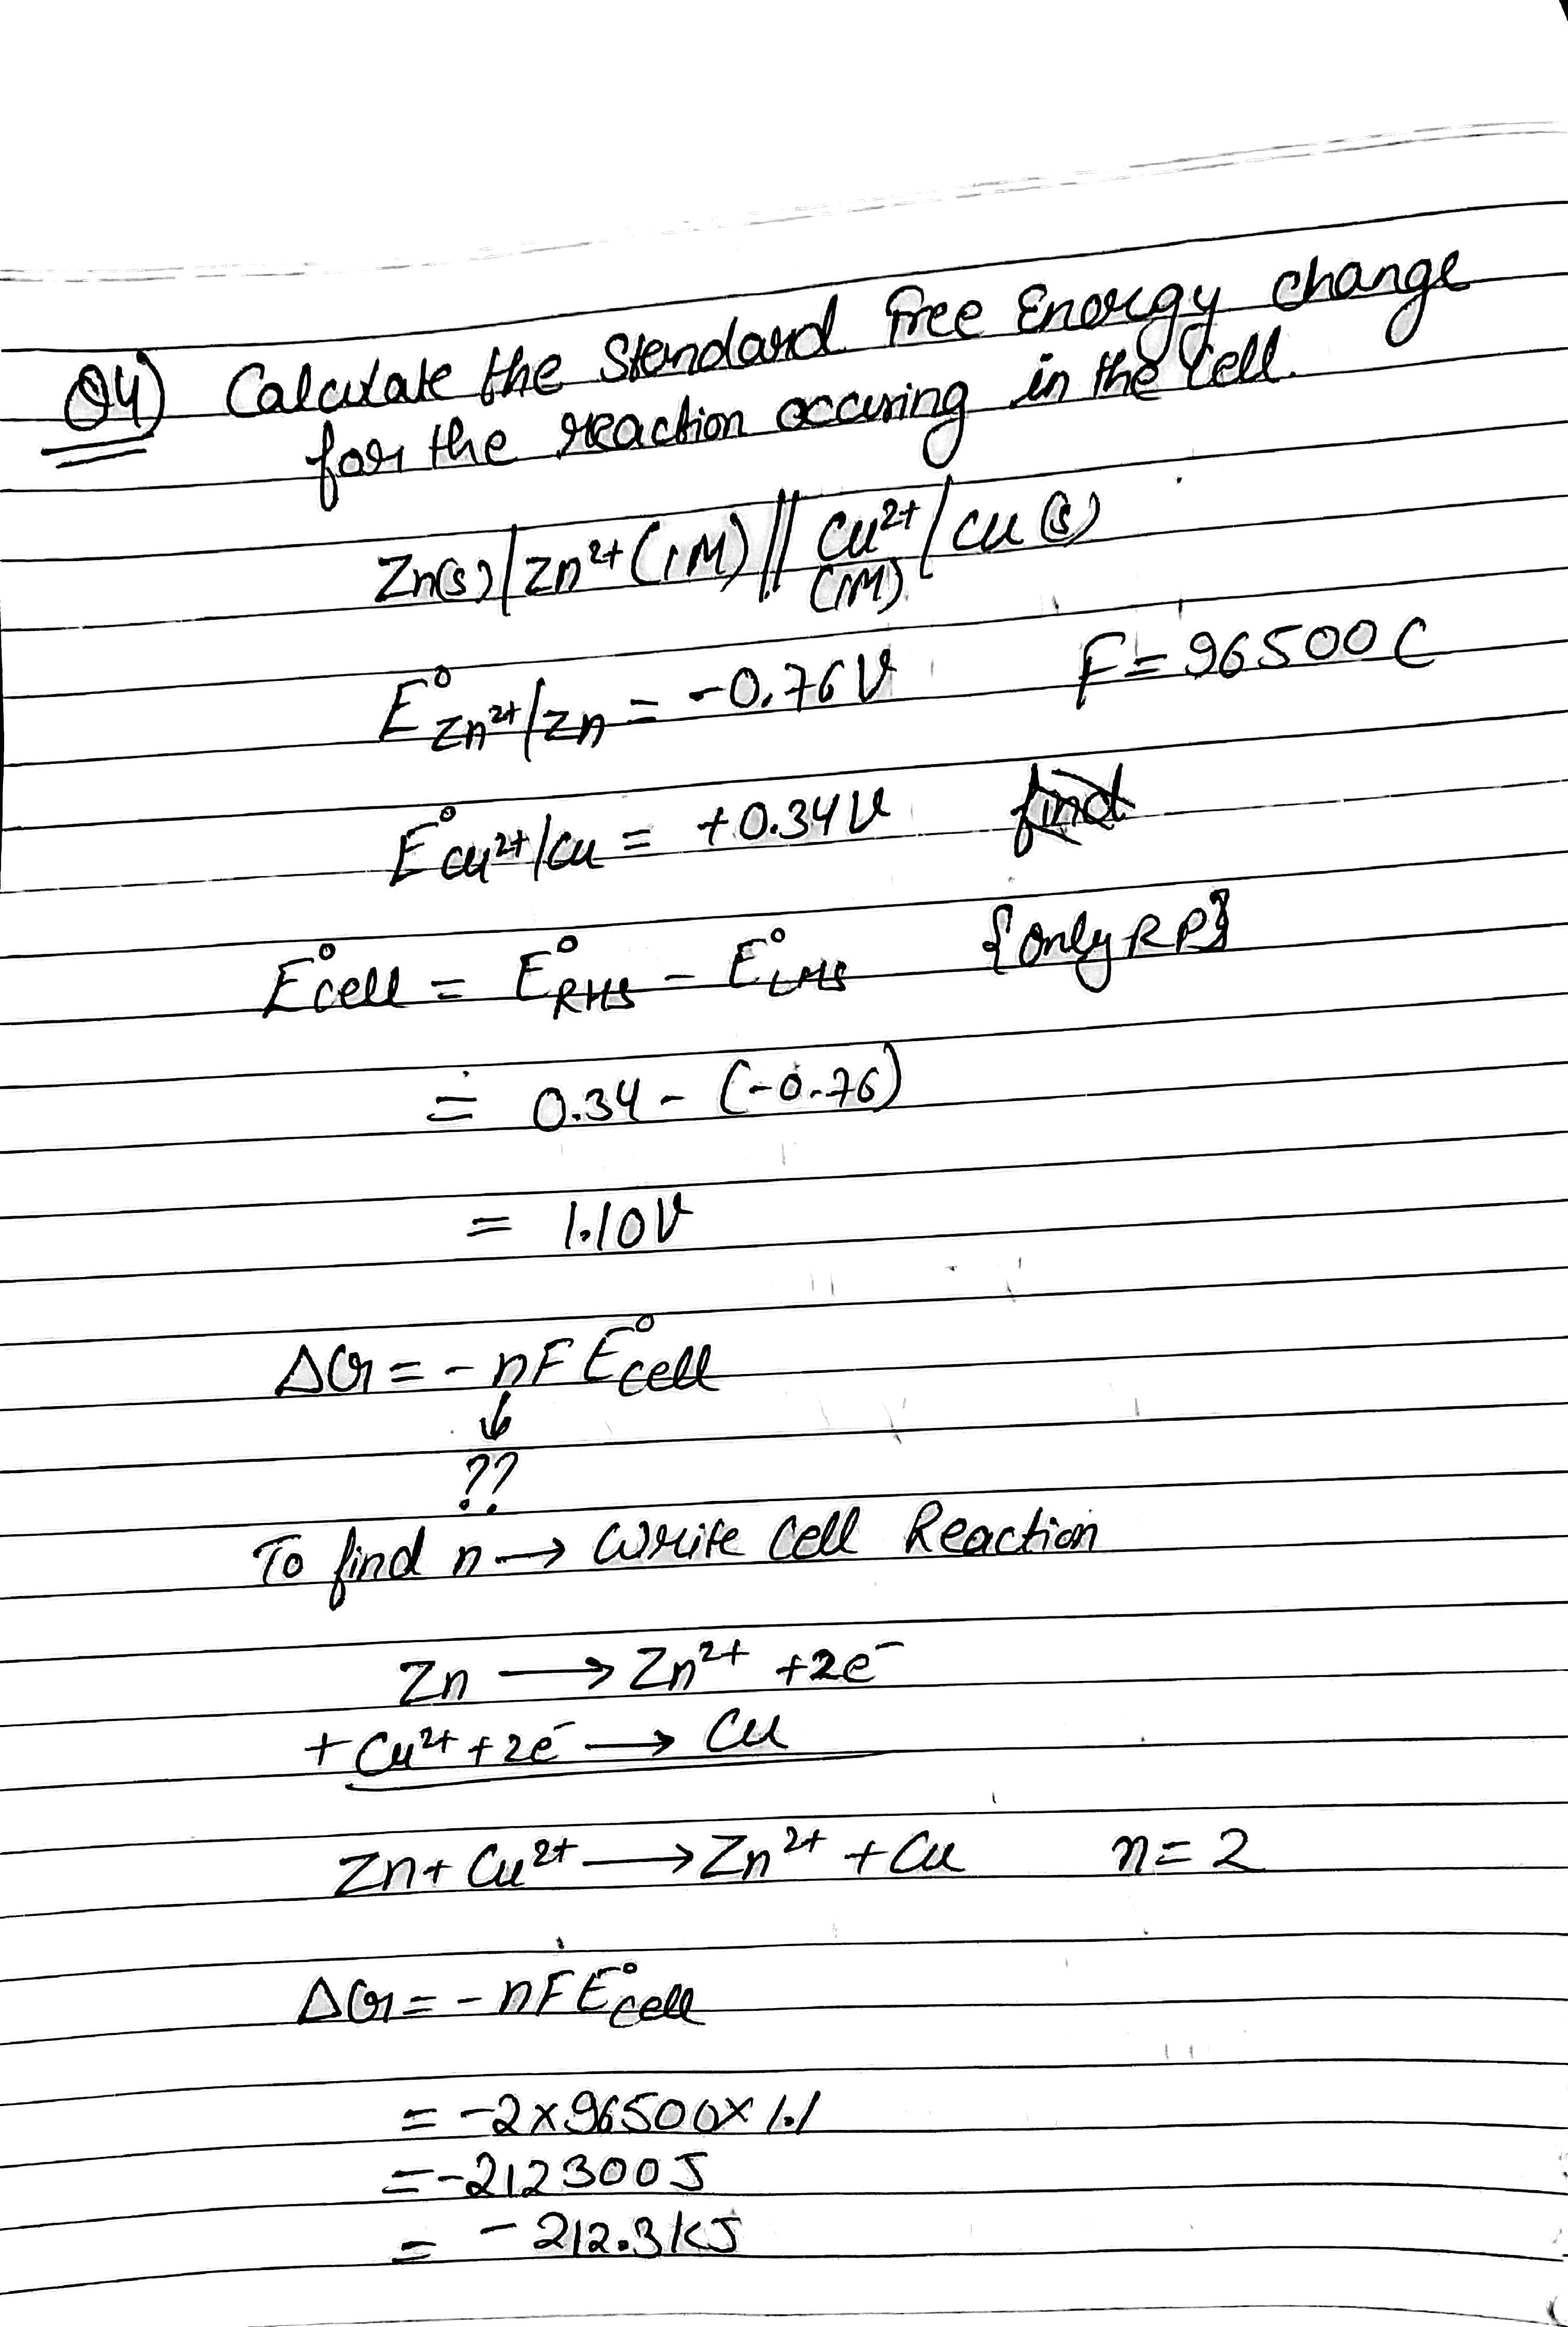 Q4) Calculate the Standard Free Energy change
for the reaction occuring in the Cell.
Zn(s) / Zn²⁺ (1M) // Cu²⁺ (1M) / Cu (s)
E°Zn²⁺/Zn = -0.76V F = 96500 C
E°Cu²⁺/Cu = +0.34V find
E°cell = E°RHS - E°LHS {only RP}
= 0.34 - (-0.76)
= 1.10V
ΔG = - nFE°cell
↓
??
To find n → Write Cell Reaction
Zn → Zn²⁺ + 2e⁻
+ Cu²⁺ + 2e⁻ → Cu
Zn + Cu²⁺ → Zn²⁺ + Cu n = 2
ΔG = - nFE°cell
= -2 × 96500 × 1.1
= -212300J
= - 212.3KJ